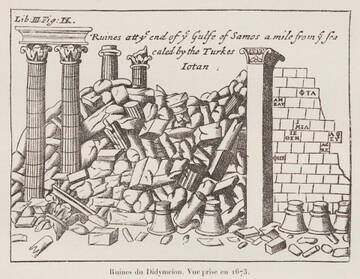 Lib. III. Fig: IX.
Ruines att yͤ end of yͤ Gulfe of Samos a mile from yͤ sea
caled by the Turkes
Iotan
ΦΤΛ
ΜΙΛ
Ruines du Didymeion. Vue prise en 1673.